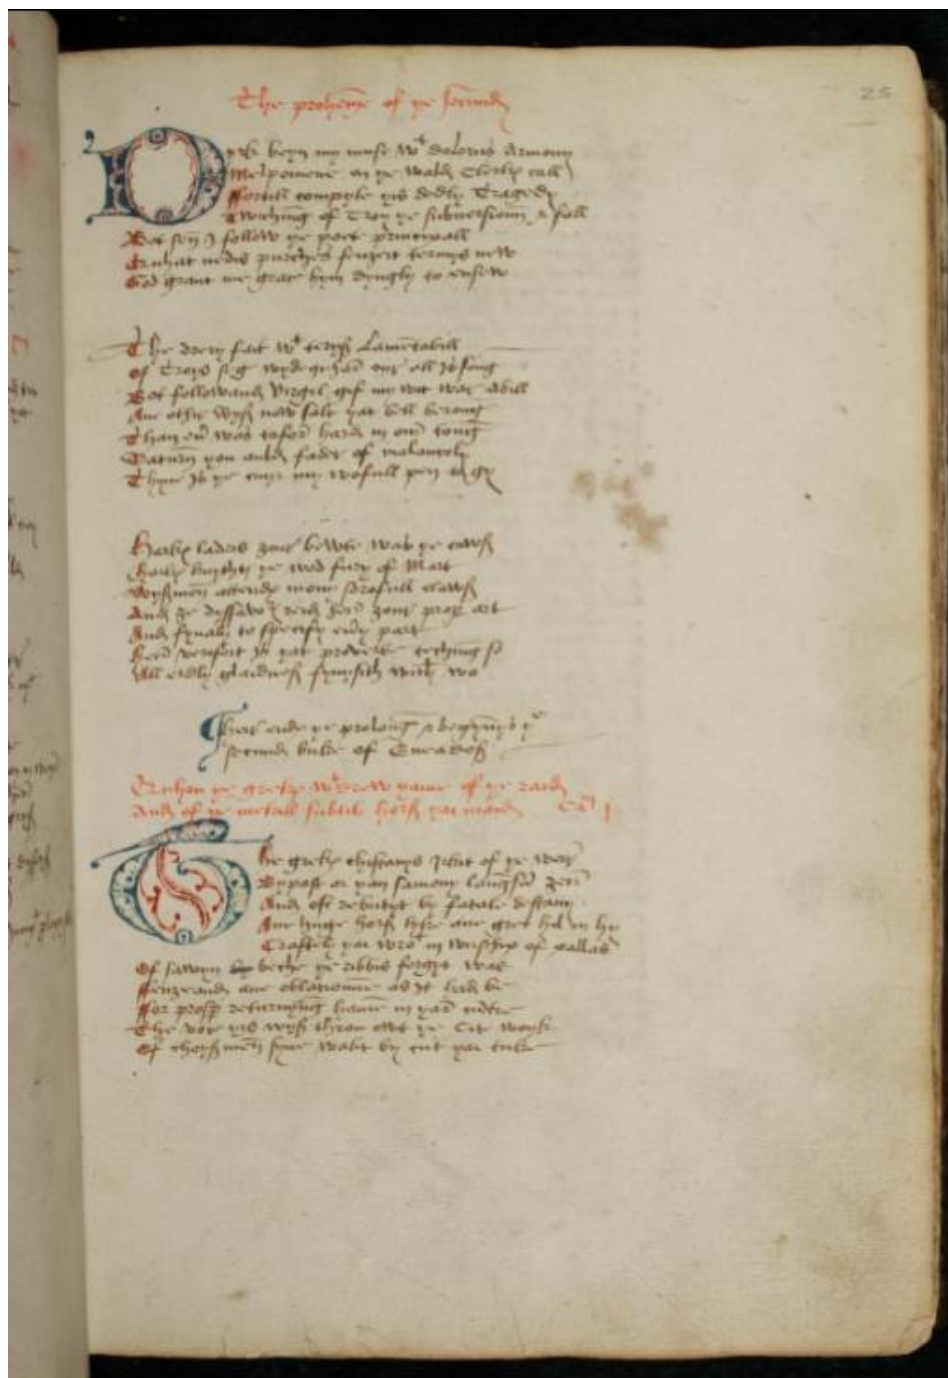 25
The proheme of ye secund
Dyrk beyn my muse wt dolorus armony
Melpomene on ye wald clerkis call
ffortill compyle yis dedly tragedy
Twiching of Troy ye subuersioun & fall
Bot sen I follow ye poete principall
Quhat nedis purches fenzeit termys new
God grant me grace hym dyngly to ensew
The drery fait wt termys lamentabill
Of Troys sege wydequhar our all is song
Bot followand Virgil gif my wit war abill
Ane othir wyß now salt yat bell be rong
Than euir was tofor hard in our tong
Saturn you auld fader of malancoly
Thyne is ye cuyr my wofull pen to gy
Harkis ladeis zour bewte was ye cawß
Harkis knychtis ye wod fury of Mart
Wyßmen attendis mony sorofull clawß
And ze dyssavouris reid heir zour proper art
And fynaly to specify euery part
Heir verifeit is yat proverbe teching so
All erdly glaidneß fynysith with wo
Heir endis ye prolong & begynnys ye
secund buke of Eneados
Quhou ye grekis wtdrew yame of ye raid
And of ye metall subtil horß yai maid Ca 1
The grekis chiftanys irkit of ye weir
Bypast or yan samony langsum zeir
And oft rebutyt by fatale destany
Ane huge horß lyke ane gret hil in hy
Craftely yai wrot in wirschip of Pallas
Of sawyn beche ye ribbis forgyt was
ffenzeand ane oblatioune as it had be
ffor prosper returnyng hame in yar cuntre
The voce yis wyß throu owt ye cite woyk
Of choyß men syne walit by cut yai tuke